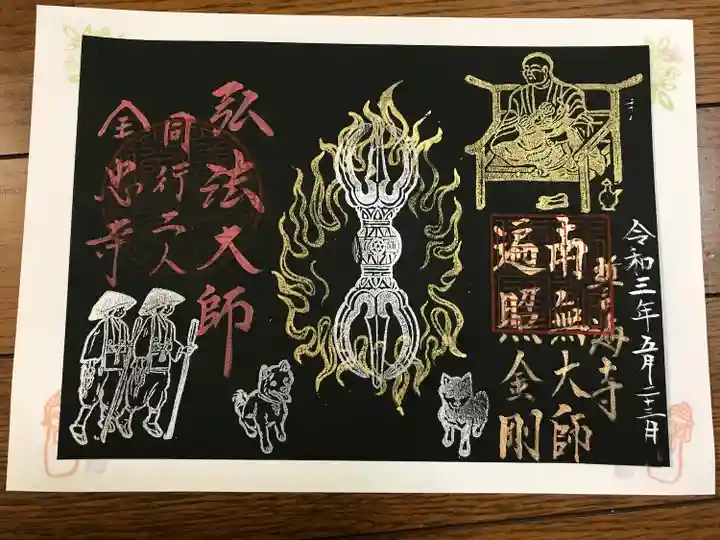 令和三年五月二十三日
誓海寺
南無大師
遍照金剛
弘法大師
同行二人
全忠寺